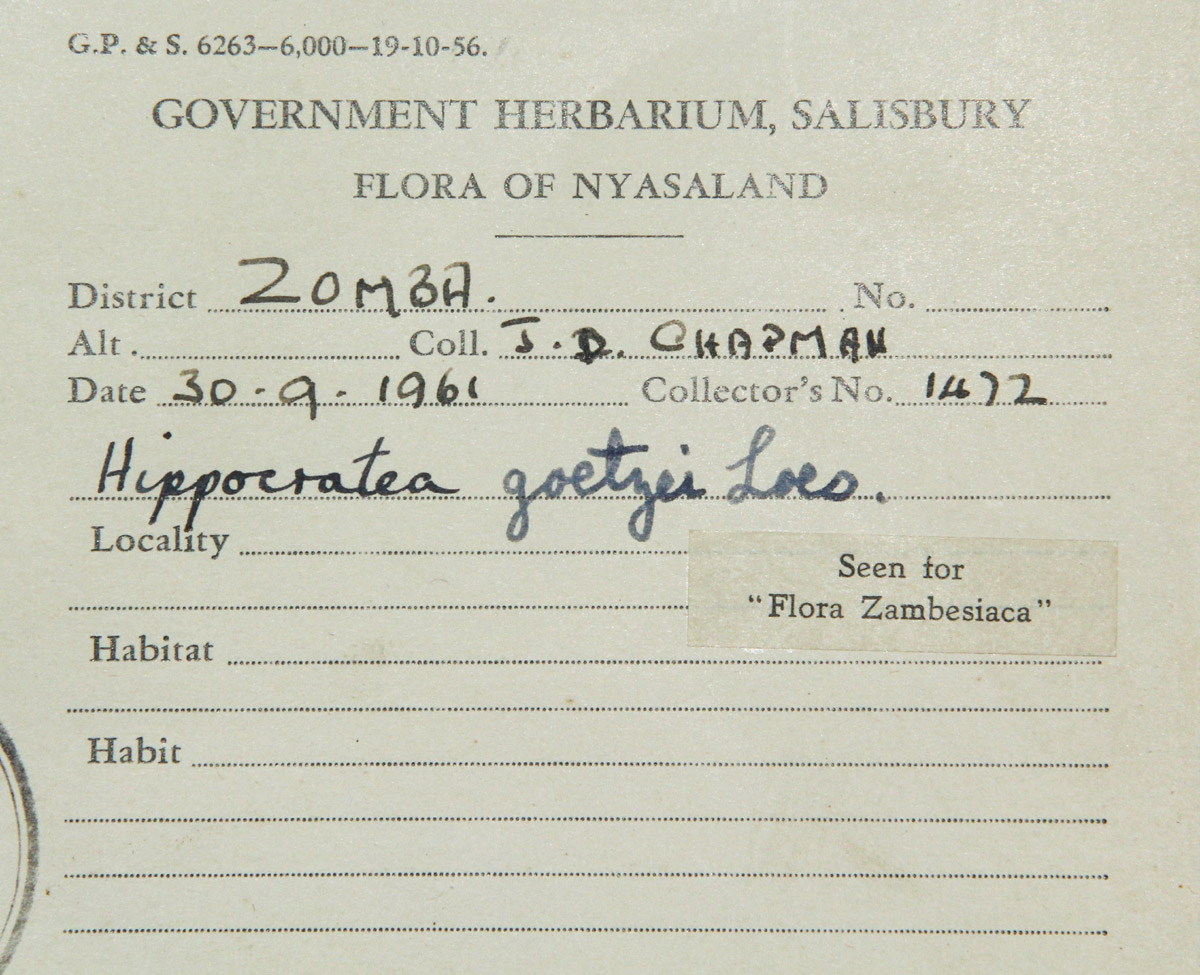 G.P. & S. 6263—6,000—19-10-56.
GOVERNMENT HERBARIUM, SALISBURY
FLORA OF NYASALAND
District ZOMBA. No.
Alt. Coll. J. D. CHAPMAN
Date 30-9-1961 Collector's No. 1472
Hippocratea goetzei Loes.
Locality
Seen for
"Flora Zambesiaca"
Habitat
Habit